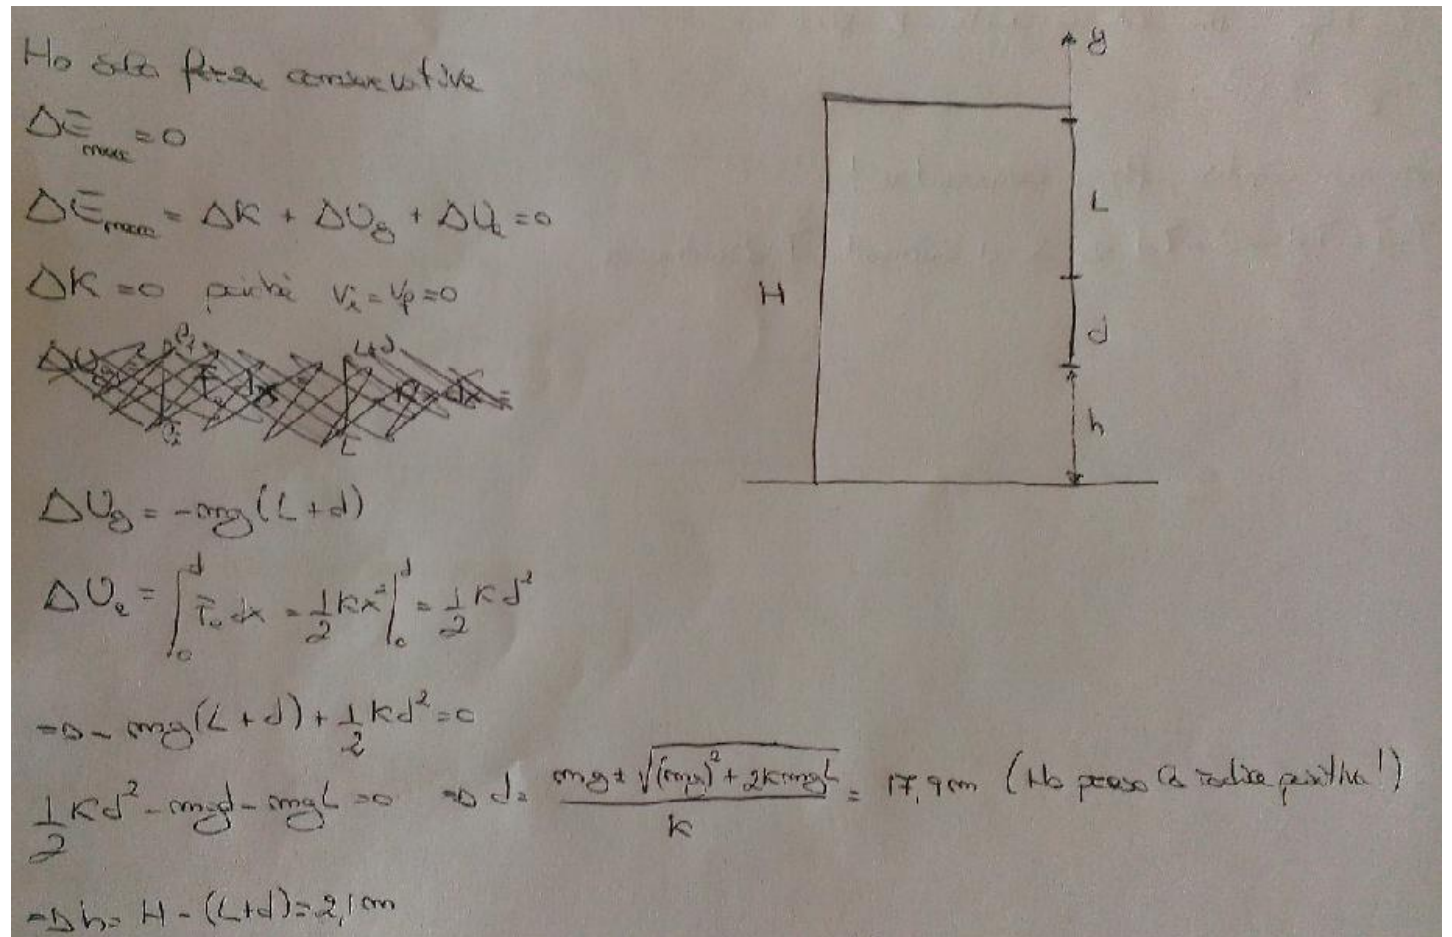 Ho solo forze conservative
ΔE_mecc = 0
ΔE_mecc = ΔK + ΔU_g + ΔU_e = 0
ΔK = 0 perché v_i = v_f = 0
ΔU_g = -mg(L+d)
ΔU_e = ∫_0^d F_e dx = 1/2 kx² |_0^d = 1/2 kd²
⇒ - mg(L+d) + 1/2 kd² = 0
1/2 kd² - mgd - mgL = 0 ⇒ d = (mg ± √((mg)² + 2kmgL)) / k = 17,9 m (Ho preso la radice positiva!)
⇒ h = H - (L+d) = 2,1 m
y
L
H
d
h